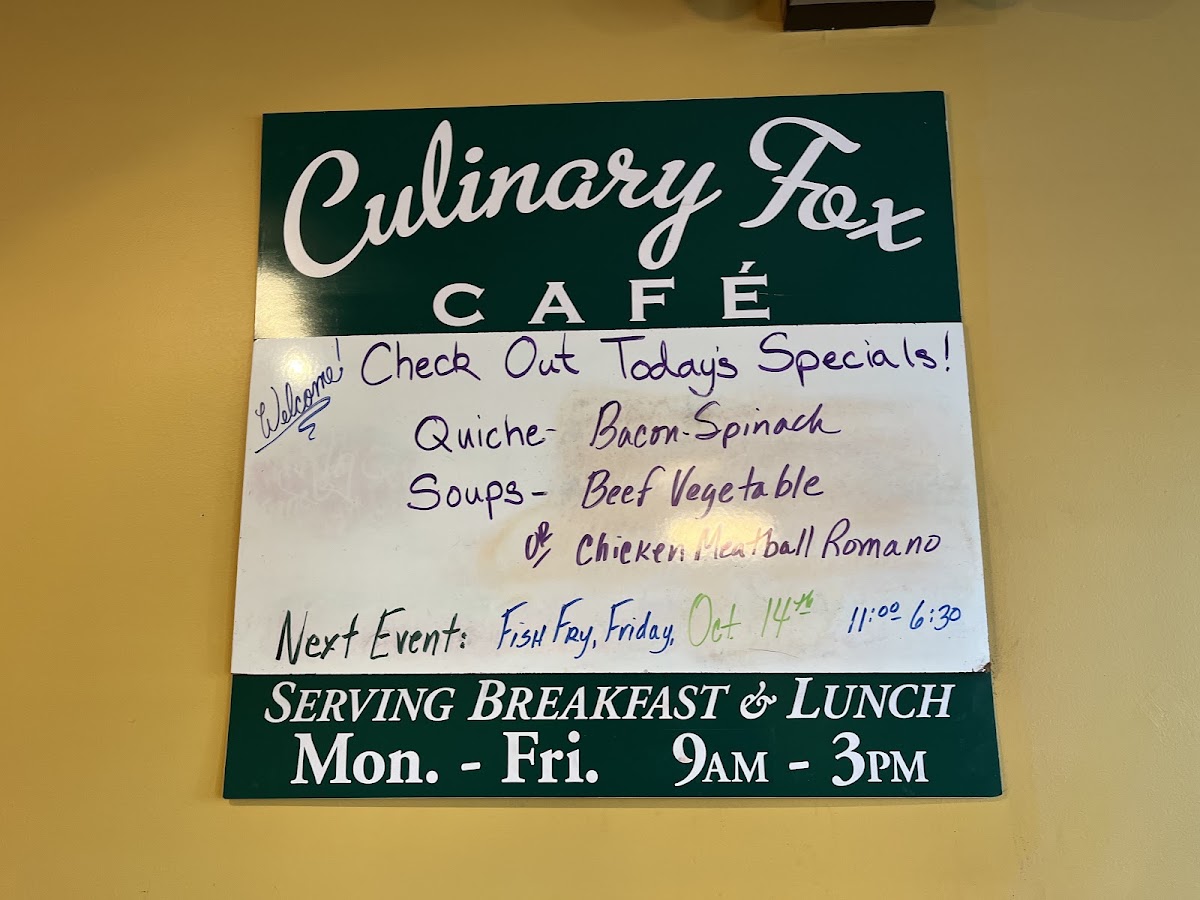 Culinary Fox
CAFÉ
Welcome!
Check Out Today's Specials!
Quiche- Bacon-Spinach
Soups- Beef Vegetable
or Chicken Meatball Romano
Next Event: Fish Fry, Friday, Oct 14th 11:00 6:30
SERVING BREAKFAST & LUNCH
Mon. - Fri. 9AM - 3PM